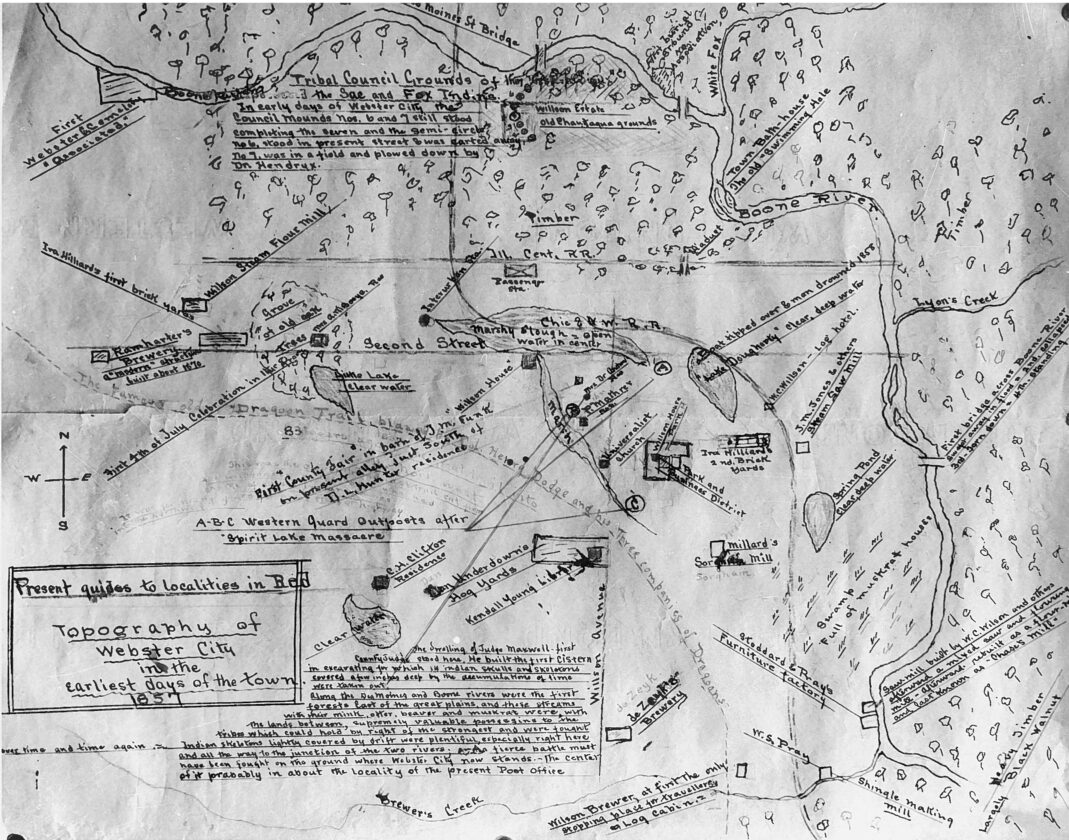 Moines St Bridge
White Fox
Boone River
First
Webster Cemetery
"Associated"
Tribal Council Grounds of the
the Sac and Fox Indians
In early days of Webster City the
Council Mounds Nos. 6 and 7 still stood
completing the seven and the semi-circle
no 6. stood in present street & was carted away
No 7, was in a field and plowed down by
Dr. Hendryx.
Willson Estate
old Chautaqua grounds
Town Bath house
The old "Swimming Hole
Boone River
Timber
Timber
Viaduct
Ill. Cent. R.R.
Passenger
Sta.
Interurban
Lyon's Creek
Wilson Steam Flour Mill
Ira Hilliard's first brick yards
Grove
of old oak
Trees
Ramharter's
Brewery
a "modern" structure
built about 1870
Second Street
Chic & N. W. R. R.
Marshy slough - open
water in center
Boat tipped over & man drowned 1855
"Lake Dougherty" clear, deep water
Duke Lake
Clear water
First 4th of July Celebration in the
Dragoon Trail
Willson House
Marsh
A
B
C
Universalist
church
Park and
Business District
Ira Hilliard's
2nd. Brick
Yards
W.C. Wilson - Log hotel.
J.M. Jones & others
Steam Saw Mill
Spring Pond
Clear, deep water
First "County Fair" in barn of J.M. Funk
on present alley just South of
D.L. Hunt residence
N
W
E
S
A-B-C Western Guard Outposts after
"Spirit Lake Massacre
C. Hellifton
Residence
Underdowns
Hog Yards
Kendall Young Library
millard's
Sorghum Mill
Sorgham
Swamp
Full of muskrat houses
Present guides to localities in Red
Topography of
Webster City
in the
earliest days of the town.
1857
Clear water
the dwelling of Judge Maxwell-first
County Judge stood here, He built the first Cistern
in excavating for which 14 indian skulls and skeletons
covered a few inches deep by the accumulations of time
were taken out
Along the Des Moines and Boone rivers were the first
forests East of the great plains, and these streams
with their mink, otter, beaver and muskrat were, with
the lands between, supremely valuable possessions to the
tribes which could hold by right of the strongest and were fought
over time and time again
Indian skeletons lightly covered by drift were plentiful, especially right here
and all the way to the junction of the two rivers. a fierce battle must
have been fought on the ground where Webster City now stands - The center
of it probably in about the locality of the present Post Office
Willson Avenue
three companies of Dragoons.
de Zeuk
de Zouke
Brewery
Stoddard & Ray's
Furniture factory
Saw mill built by W.C. Wilson and others
W.S. Pray
Shingle making
mill
Heavy Timber
Largely Black Walnut
Brewer's Creek
Wilson Brewer, at first the only
stopping place for travellers
Log Cabin